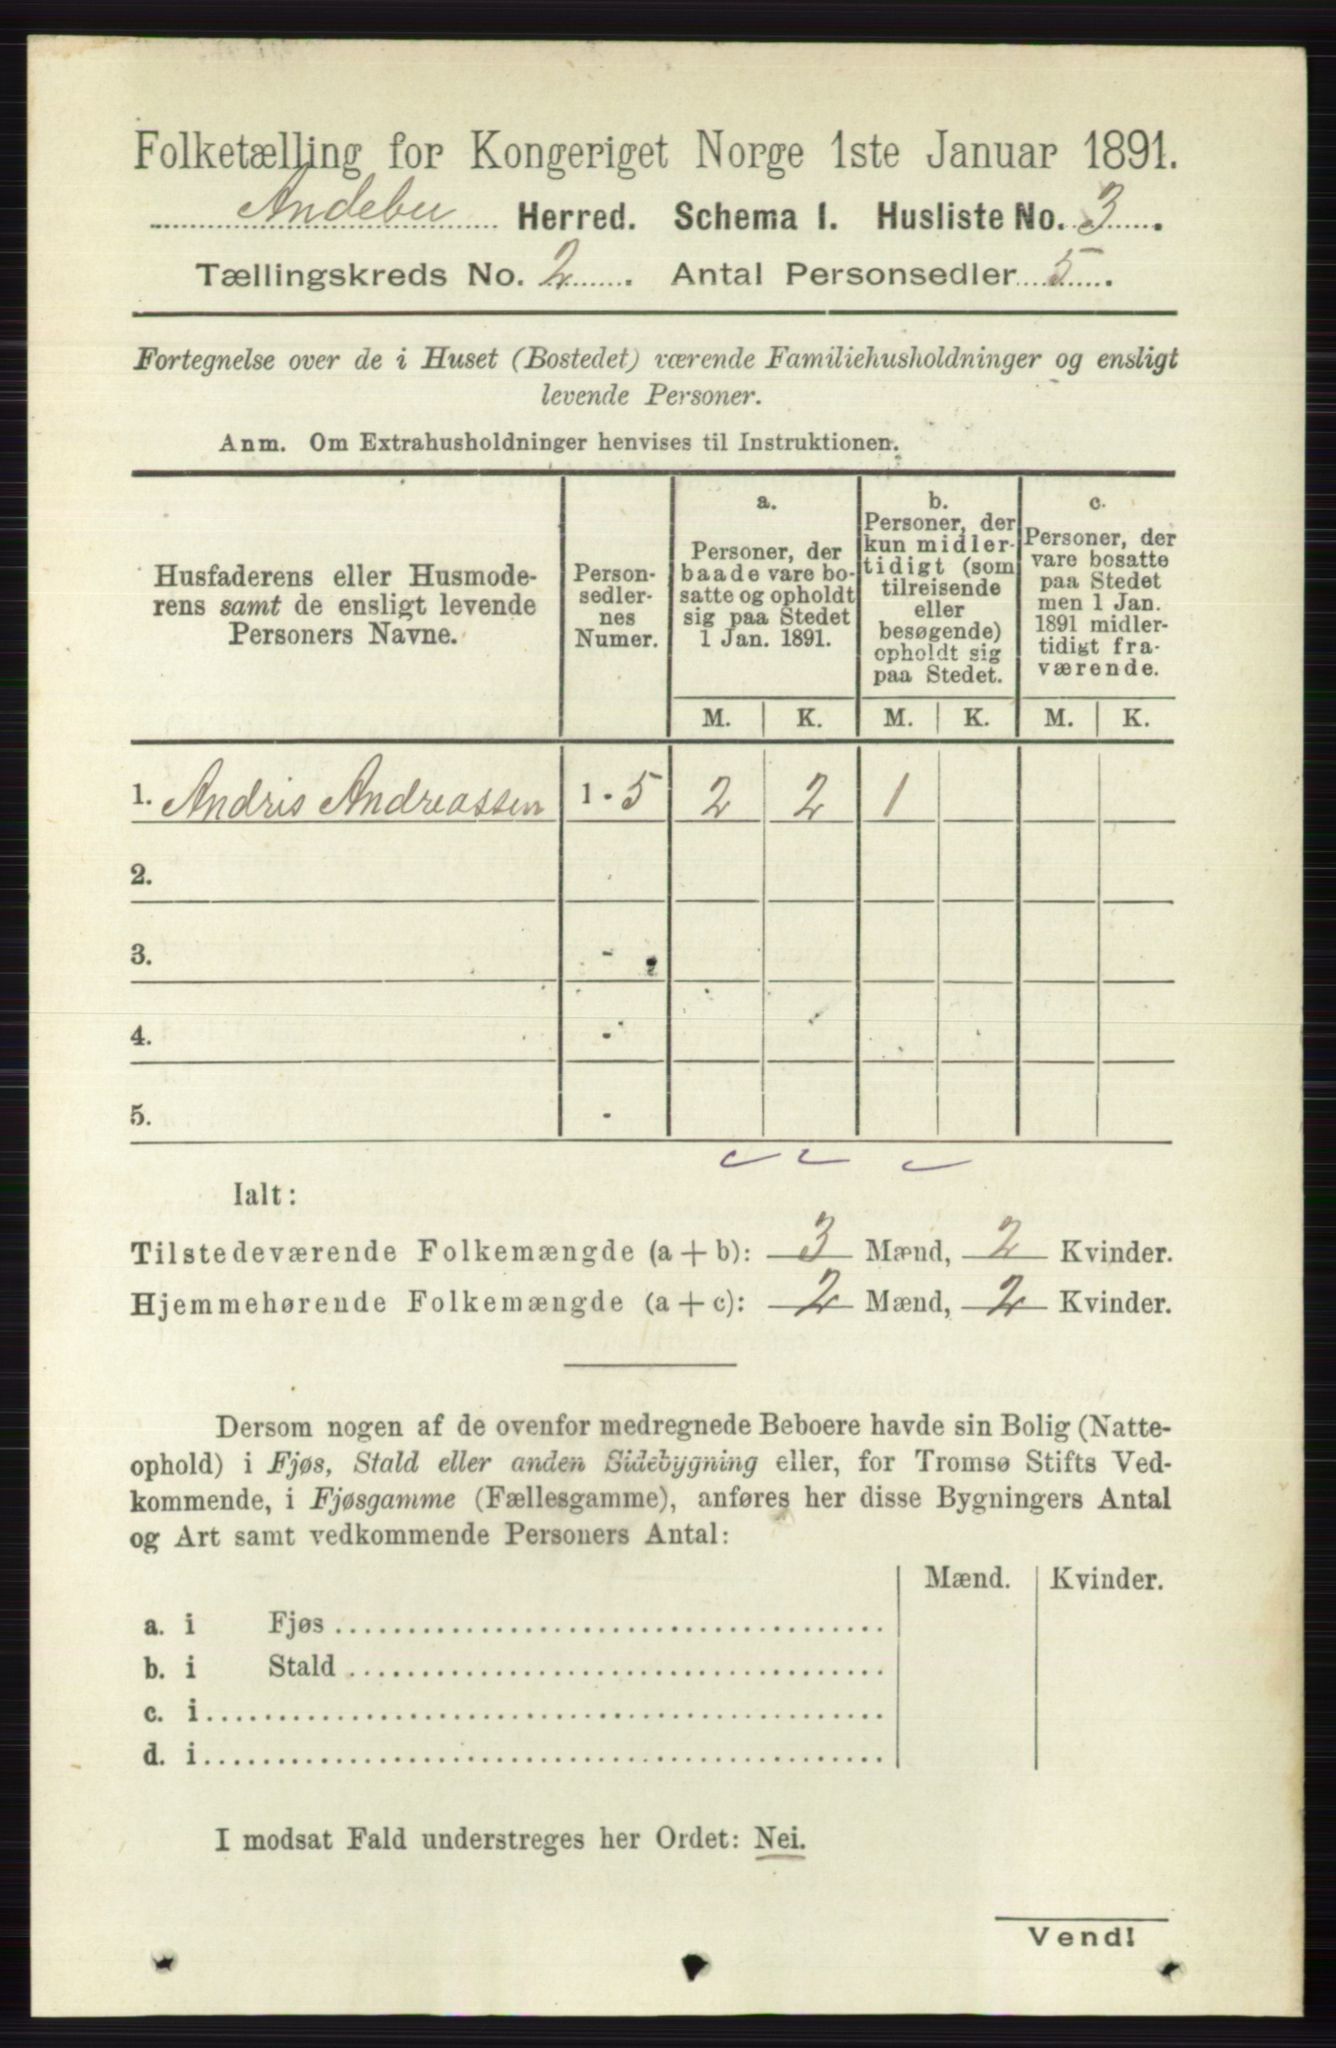 Folketælling for Kongeriget Norge 1ste Januar 1891.
Andebu Herred. Schema I. Husliste No. 3.
Tællingskreds No. 2. Antal Personsedler 5.
Fortegnelse over de i Huset (Bostedet) værende Familiehusholdninger og ensligt
levende Personer.
Anm. Om Extrahusholdninger henvises til Instruktionen.
Husfaderens eller Husmode-
rens samt de ensligt levende
Personers Navne.
Person-
sedler-
nes
Numer.
a.
Personer, der
baade vare bo-
satte og opholdt
sig paa Stedet
1 Jan. 1891.
b.
Personer, der
kun midler-
tidigt (som
tilreisende
eller
besøgende)
opholdt sig
paa Stedet.
c.
Personer, der
vare bosatte
paa Stedet
men 1 Jan.
1891 midler-
tidigt fra-
værende.
M. K. M. K. M. K.
1. Andris Andreassen 1 - 5 2 2 1
2.
3. -
4. -
5. -
Ialt:
Tilstedeværende Folkemængde (a + b): 3 Mænd, 2 Kvinder.
Hjemmehørende Folkemængde (a + c): 2 Mænd, 2 Kvinder.
Dersom nogen af de ovenfor medregnede Beboere havde sin Bolig (Natte-
ophold) i Fjøs, Stald eller anden Sidebygning eller, for Tromsø Stifts Ved-
kommende, i Fjøsgamme (Fællesgamme), anføres her disse Bygningers Antal
og Art samt vedkommende Personers Antal:
Mænd. Kvinder.
a. i Fjøs
b. i Stald
c. i
d. i
I modsat Fald understreges her Ordet: Nei.
Vend!